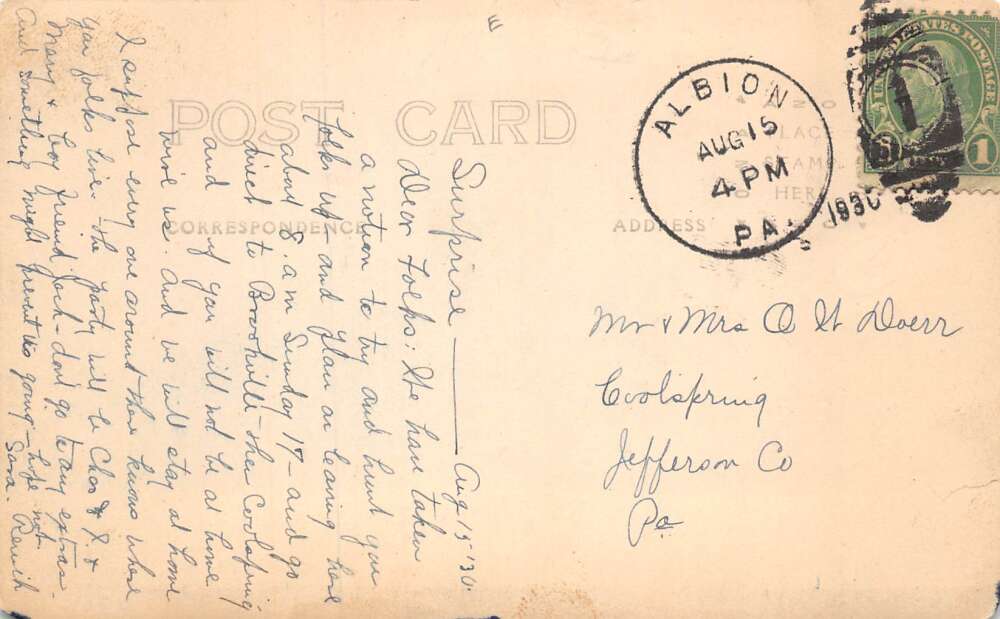 POST CARD
CORRESPONDENCE
ADDRESS
PLACE
STAMP
HERE
UNITED STATES POSTAGE
1
1
ALBION
AUG 15
4 PM
PA.
1930
Surprise — Aug 15 '30
Dear Folks: We have taken
a notion to try and hunt you
folks up - and plan on leaving here
about 8. a m Sunday 17 - and go
direct to Brookville - then Coolspring
and if you will not be at home
wire us. And we will stay at home
I suppose every one around there knows where
you folks live. The party will be Chas & I. &
Mary & boy friend Jack - don't go to any extras.
And something might prevent us going - hope not.
Sara. Renich
Mr & Mrs O W Doerr
Coolspring
Jefferson Co
Pa